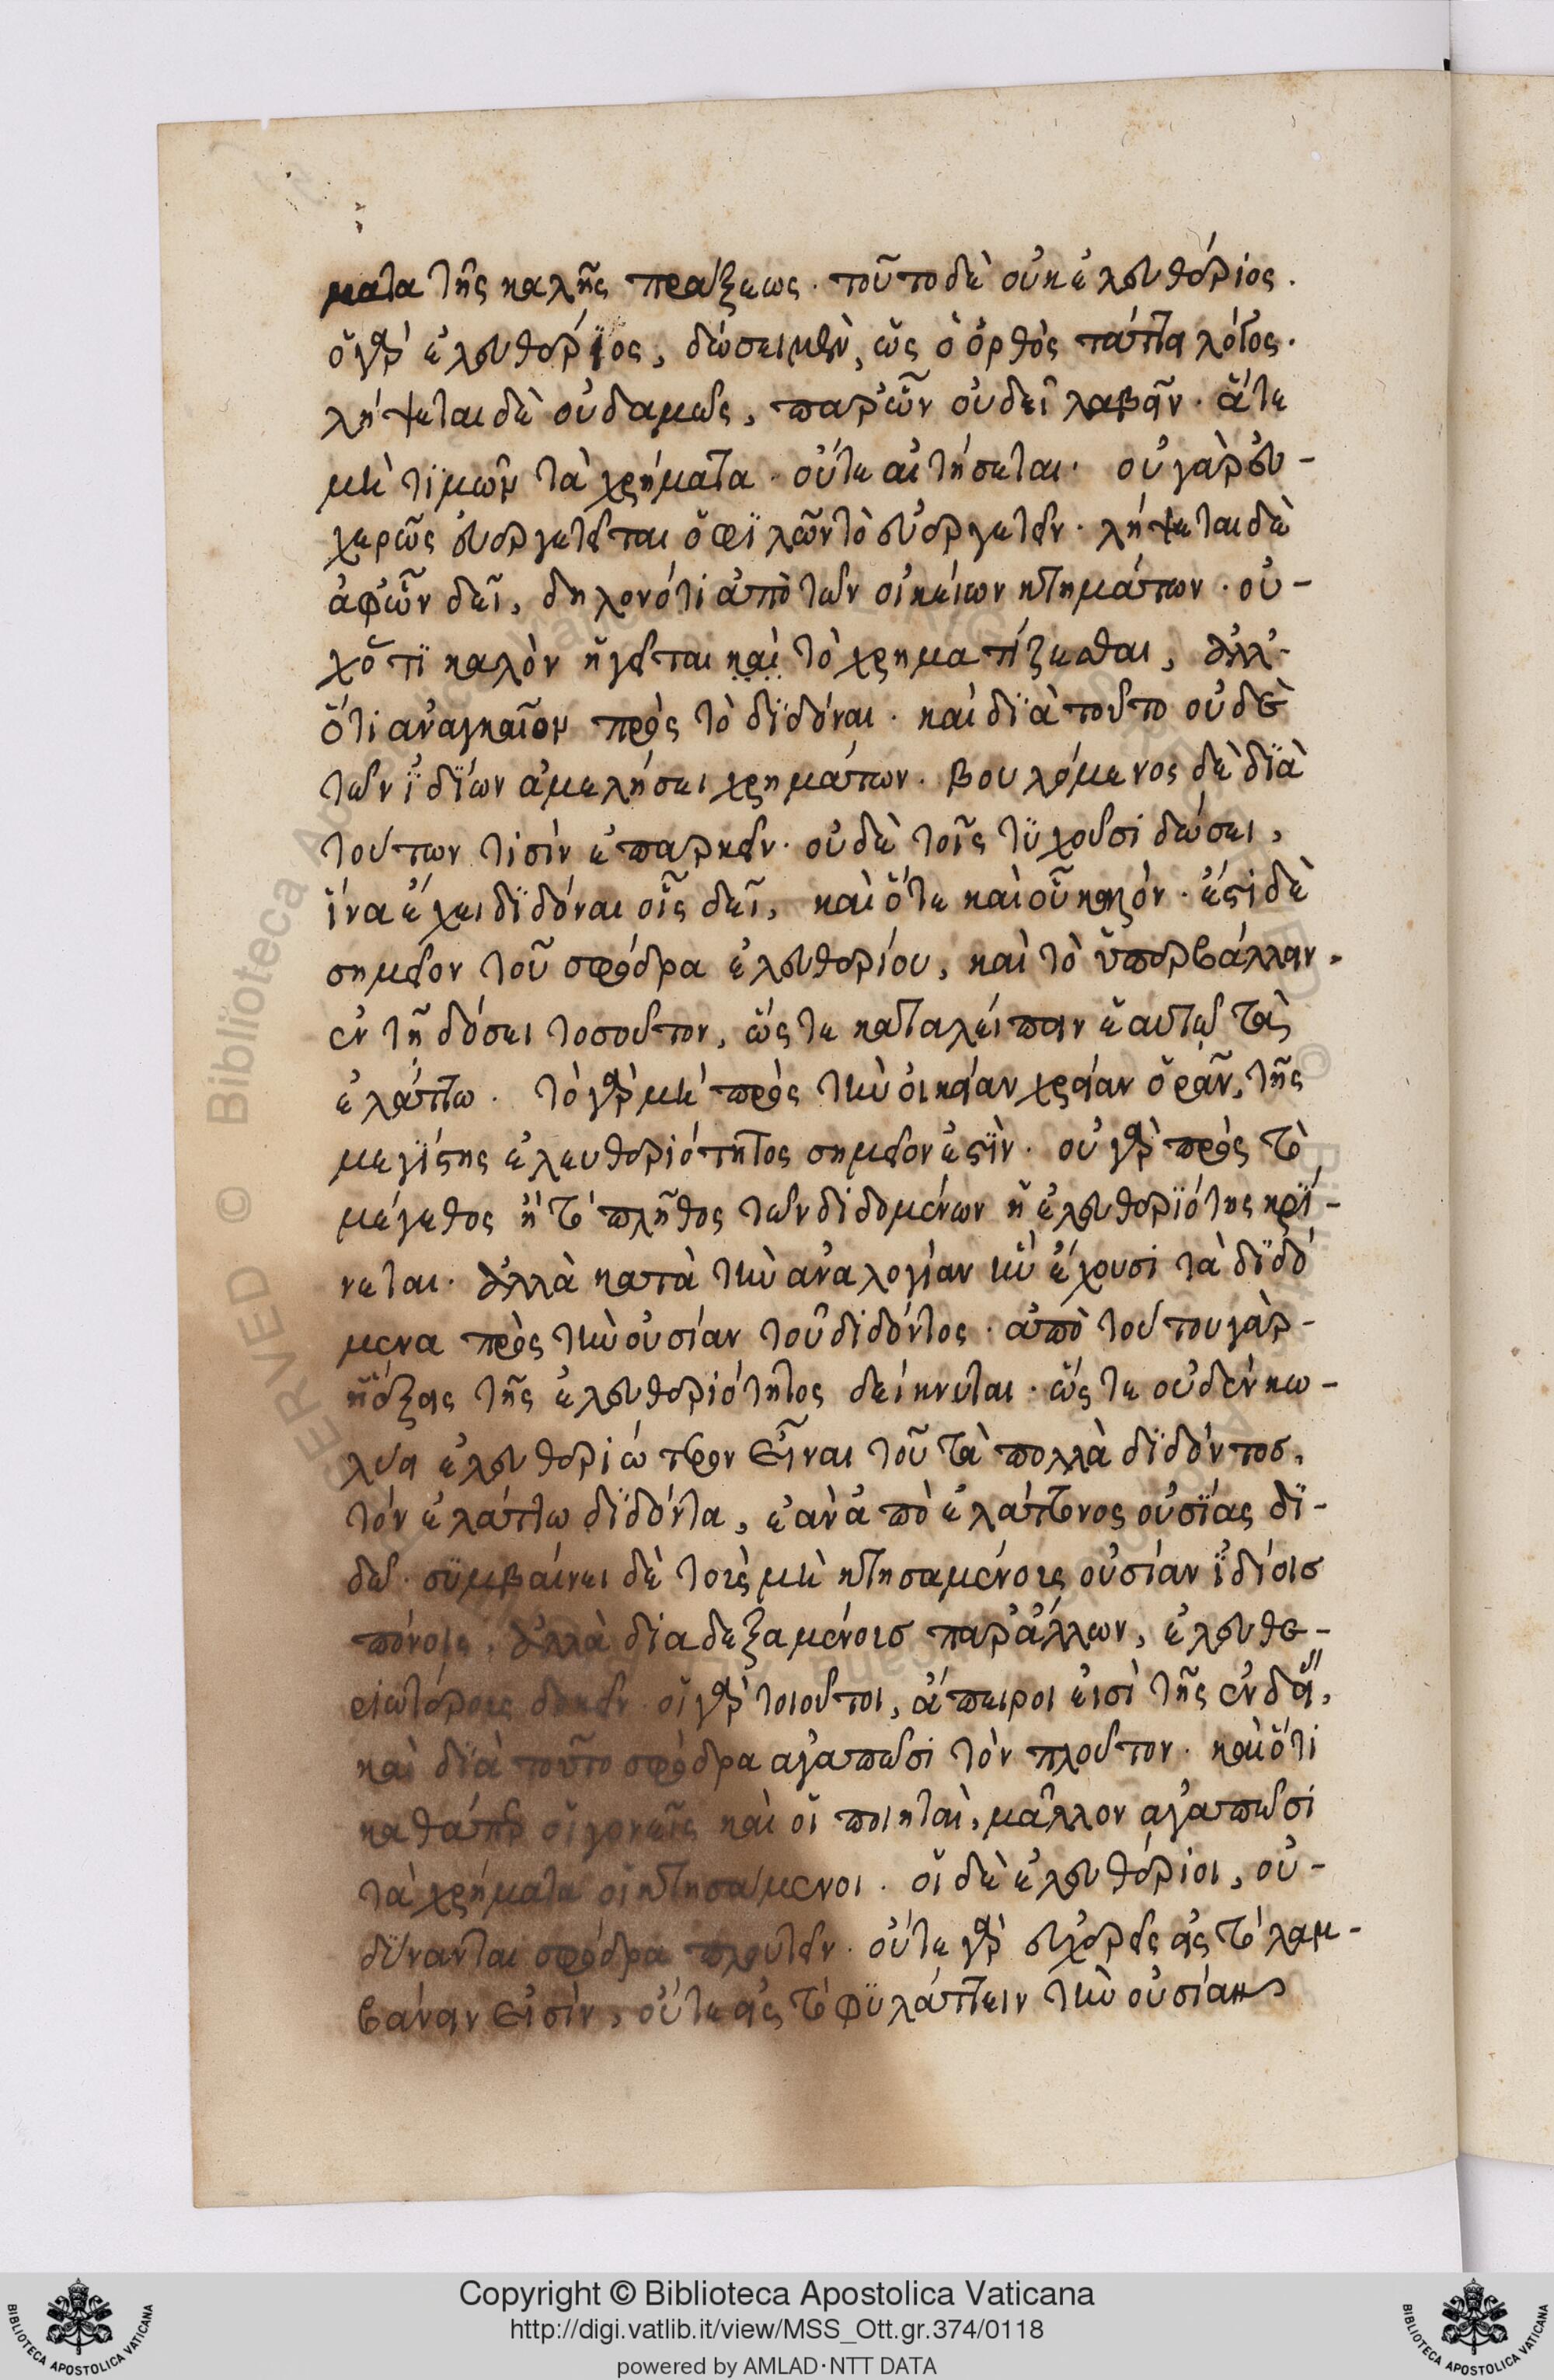 ματα τῆς καλῆς πράξεως· τοῦτο δὲ οὐκ ἐλευθέριος.
ὁ γὰρ ἐλευθέριος, δώσει μὲν, ὡς ὁ ὀρθὸς τάττει λόγος.
λήψεται δὲ οὐδαμῶς, παρ' ὧν οὐ δεῖ λαβεῖν· ἅτε
μὴ τιμῶν τὰ χρήματα· οὔτε αἰτήσεται· οὐ γὰρ εὐ-
χερῶς εὐεργετεῖται ὁ φιλῶν τὸ εὐεργετεῖν· λήψεται δὲ
ἀφ' ὧν δεῖ, δηλονότι ἀπὸ τῶν οἰκείων κτημάτων· οὐ-
χ ὅτι καλὸν ἡγεῖται καὶ τὸ χρηματίζεσθαι, ἀλλ'
ὅτι ἀναγκαῖον πρὸς τὸ διδόναι· καὶ διὰ τοῦτο οὐδὲ
τῶν ἰδίων ἀμελήσει χρημάτων· βουλόμενος δὲ διὰ
τούτων τισὶν ἐπαρκεῖν· οὐδὲ τοῖς τυχοῦσι δώσει,
ἵνα ἔχει διδόναι οἷς δεῖ, καὶ ὅτε καὶ οὗ καλόν· ἔστι δὲ
σημεῖον τοῦ σφόδρα ἐλευθερίου, καὶ τὸ ὑπερβάλλειν
ἐν τῇ δόσει τοσοῦτον, ὥστε καταλείπειν ἑαυτῷ τὰ
ἐλάττω· τὸ γὰρ μὴ πρὸς τὴν οἰκείαν χρείαν ὁρᾶν, τῆς
μεγίστης ἐλευθεριότητος σημεῖον ἐστὶν· οὐ γὰρ πρὸς τὸ
μέγεθος ἢ τὸ πλῆθος τῶν διδομένων ἡ ἐλευθεριότης κρί-
νεται· ἀλλὰ κατὰ τὴν ἀναλογίαν ἣν ἔχουσι τὰ διδό
μενα πρὸς τὴν οὐσίαν τοῦ διδόντος· ἀπὸ τούτου γὰρ
ἡ ἕξις τῆς ἐλευθεριότητος δείκνυται· ὥστε οὐδὲν κω-
λύει ἐλευθεριώτερον εἶναι τοῦ τὰ πολλὰ διδόντος,
τὸν ἐλάττω διδόντα, ἐὰν ἀπὸ ἐλάττονος οὐσίας δι-
δῷ· συμβαίνει δὲ τοῖς μὴ κτησαμένοις οὐσίαν ἰδίοις
πόνοις, ἀλλὰ διαδεξαμένοις παρ' ἄλλων, ἐλευθε-
ριωτέροις δοκεῖν· οἱ γὰρ τοιοῦτοι, ἄπειροι εἰσὶ τῆς ἐνδείας,
καὶ διὰ τοῦτο σφόδρα ἀγαπῶσι τὸν πλοῦτον· καὶ ὅτι
καθάπερ οἱ γονεῖς καὶ οἱ ποιηταὶ, μᾶλλον ἀγαπῶσι
τὰ χρήματα οἱ κτησάμενοι· οἱ δὲ ἐλευθέριοι, οὐ-
δύνανται σφόδρα πλουτεῖν· οὔτε γὰρ εὐχερεῖς εἰς τὸ λαμ-
βάνειν εἰσὶν, οὔτε εἰς τὸ φυλάττειν τὴν οὐσίαν,
© Biblioteca Apostolica Vaticana
Copyright © Biblioteca Apostolica Vaticana
http://digi.vatlib.it/view/MSS_Ott.gr.374/0118
powered by AMLAD·NTT DATA
BIBLIOTECA APOSTOLICA VATICANA
BIBLIOTECA APOSTOLICA VATICANA